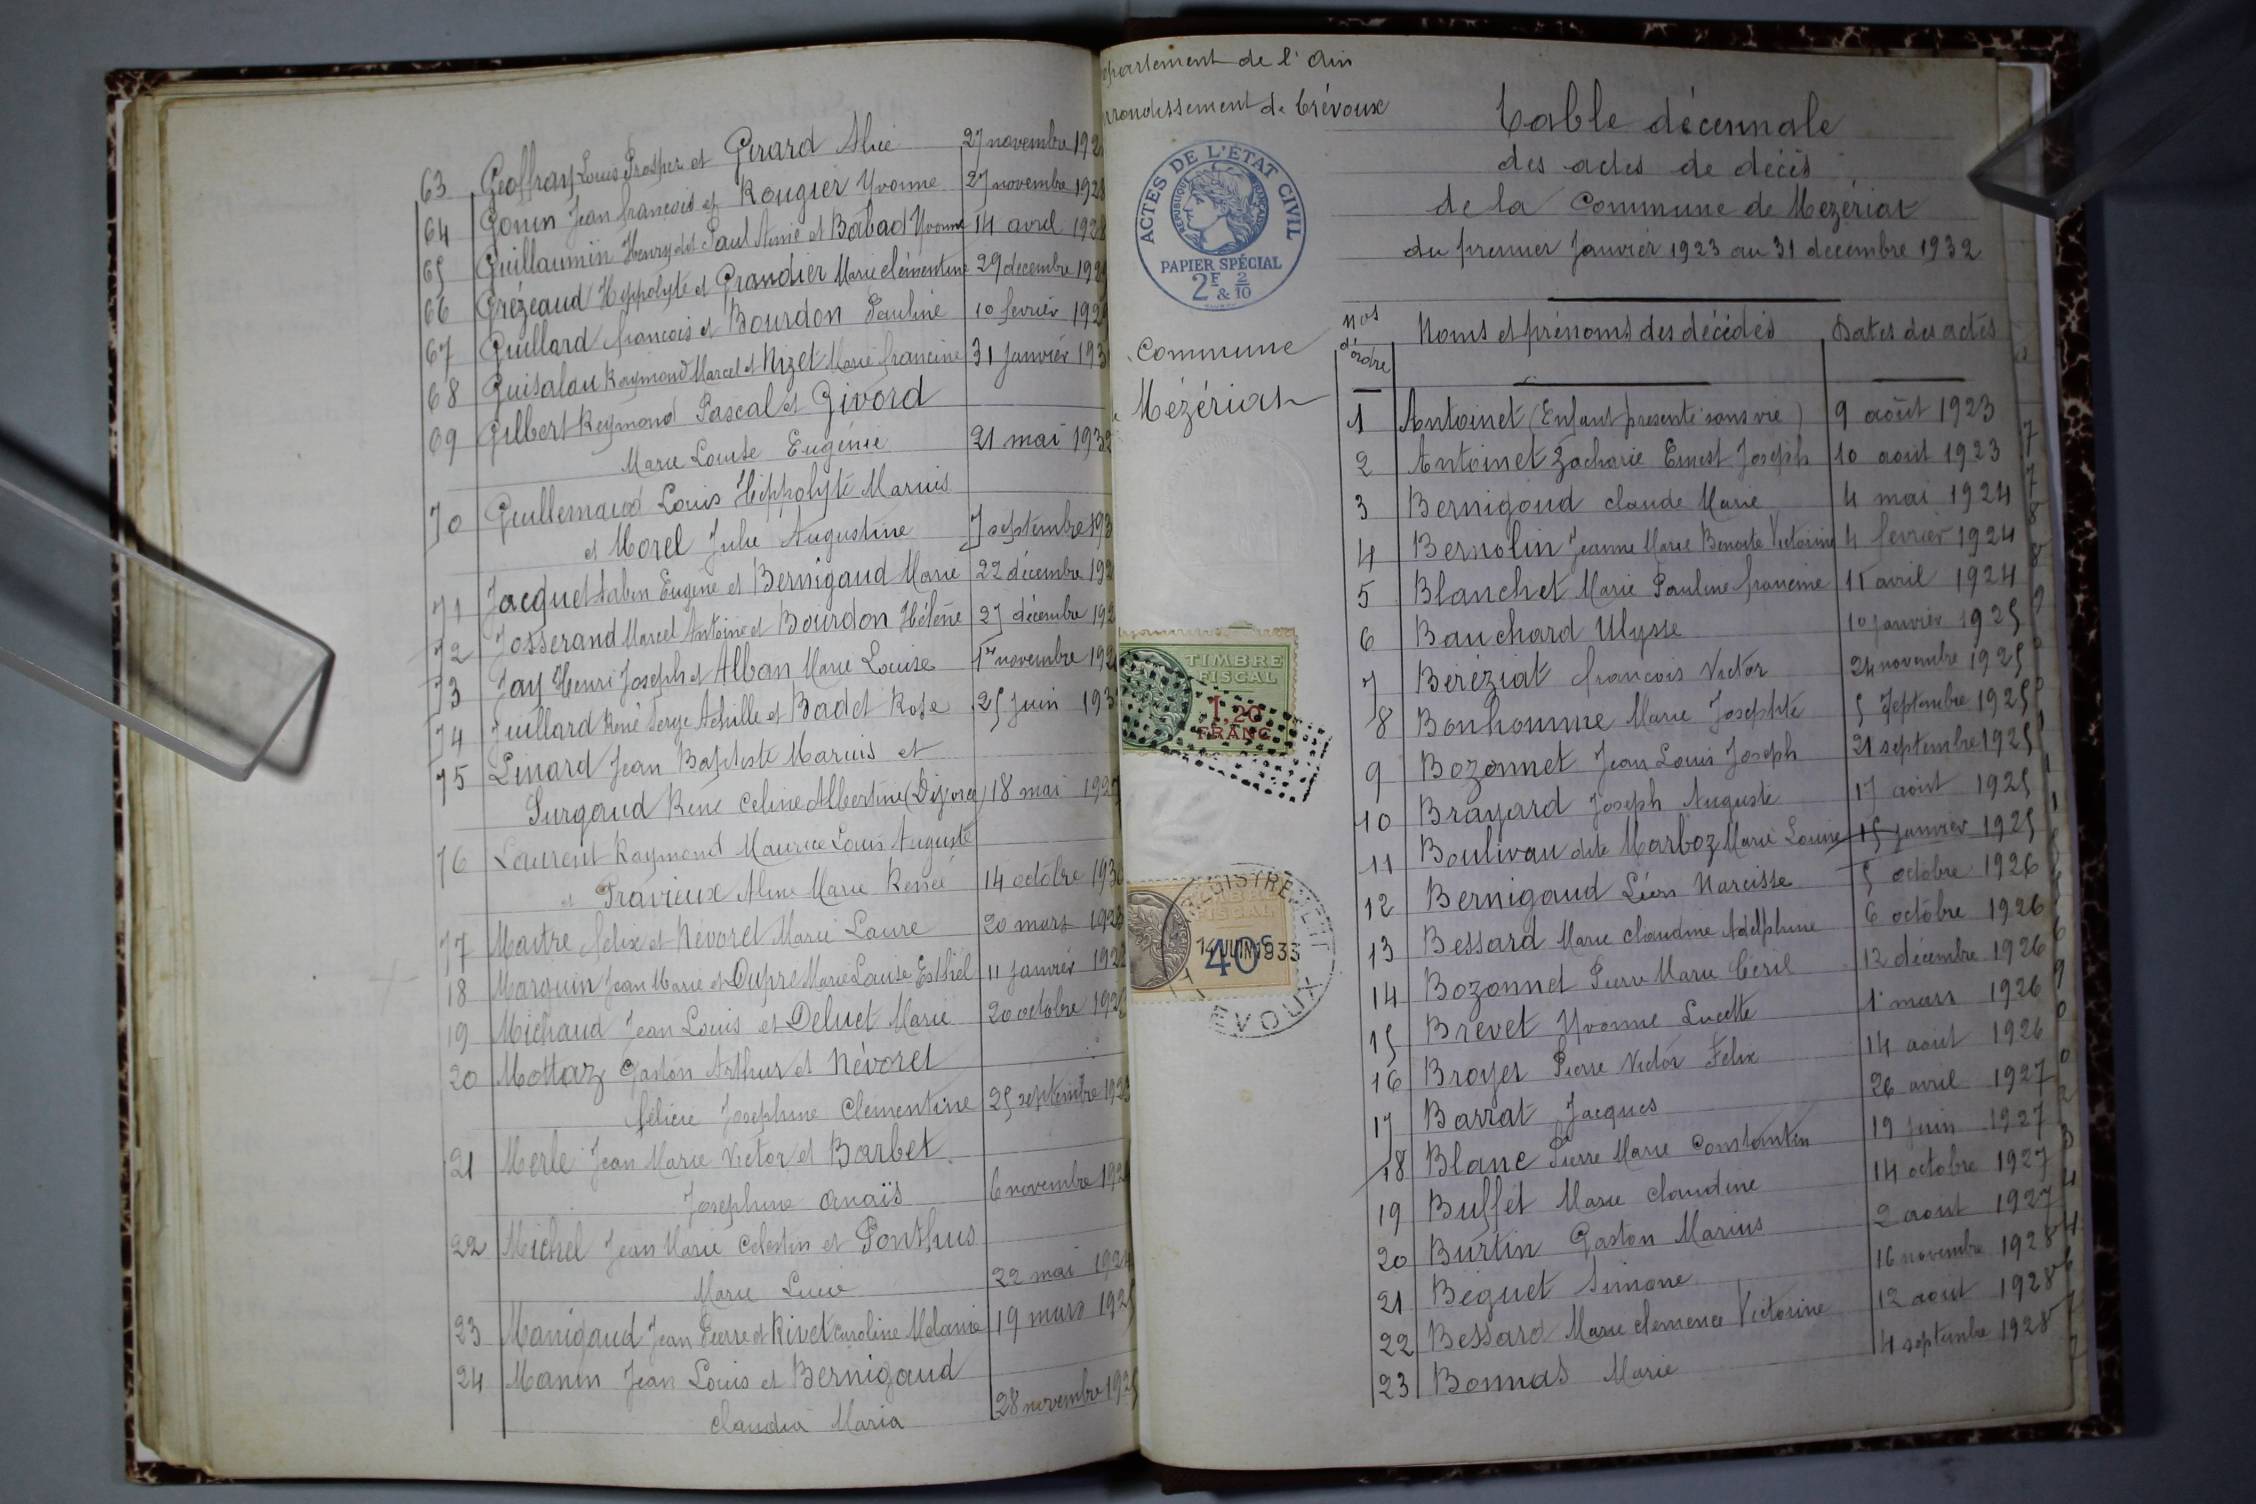 63 Geoffray Louis Prosper et Girard Alice 27 novembre 192
64 Gonin Jean francois et Rougier Yvonne 27 novembre 1928
65 Guillaumin Henry dit Paul Aimé et Babad Yvonne 14 avril 1928
66 Grézeaud Hippolyte et Grandier Marie clémentine 29 decembre 192
67 Guillard francois et Bourdon Pauline 10 fevrier 192
68 Guisalau Raymond Marcel et Nizet Marie francine 31 janvier 193
69 Gilbert Reymond Pascal et Givord
Marie Louise Eugénie 21 mai 1932
70 Guillemaud Louis Hippolyte Marius
et Morel Julie Augustine 7 septembre 193
71 Jacquet Eugene et Bernigaud Marie 22 décembre 192
72 Josserand Marcel Antoine et Bourdon Hélène 27 décembre 192
73 Jay Henri Joseph et Alban Marie Louise 1er novembre 192
74 Juillard René Serge Achille et Badet Rose 25 juin 193
75 Linard Jean Baptiste Marius et
Surgaud René Celine Albertine 18 mai 192
76 Laurent Raymond Maurice Louis Auguste
et Pravieux Aline Marie Renée 14 octobre 1930
77 Maitre félix et Névoret Marie Laure 20 mars 1923
18 Marguin Jean Marie et Dupré Marie Louise Esthel 11 janvier 192
19 Michaud Jean Louis et Deluet Marie 20 octobre 192
20 Mottaz Gaston Arthur et Névoret
félicie Josephine Clementine 25 septembre 192
21 Merle Jean Marie Victor et Barbet
Josephine Anaïs 6 novembre 192
22 Michel Jean Marie Celestin et Ponthus
Marie Lucie 22 mai 192
23 Manigaud Jean Pierre et Rivet Caroline Melanie 19 mars 192
24 Manin Jean Louis et Bernigaud
claudia Maria 28 novembre 192
partement de l'Ain
rrondissement de Trévoux
ACTES DE L'ETAT CIVIL
REPUBLIQUE FRANÇAISE
PAPIER SPÉCIAL
2F & 2/10
Commune
Mézériat
TIMBRE
FISCAL
1,20
FRANC
TIMBRE
FISCAL
40c
14 JUIN 1933
Table décennale
des actes de décès
de la Commune de Mézériat
du premier Janvier 1923 au 31 décembre 1932
Nos d'ordre Noms et prénoms des décédés Dates des actes
1 Antoinet (Enfant presenté sans vie) 9 août 1923
2 Antoinet Zacharie Ernest Joseph 10 août 1923
3 Bernigaud claude Marie 4 mai 1924
4 Bernolin Jeanne Marie Benoite Victorine 4 fevrier 1924
5 Blanchet Marie Pauline francine 15 avril 1924
6 Bauchard Ulysse 10 janvier 1925
7 Béréziat francois Victor 24 novembre 1925
8 Bonhomme Marie Josephte 5 Septembre 1925
9 Bozonnet Jean Louis Joseph 21 septembre 1925
10 Brayard Joseph Auguste 17 août 1925
11 Boulivan dite Marboz Marie Louise 15 janvier 1925
12 Bernigaud Léon Narcisse 5 octobre 1926
13 Bessard Marie claudine Adelphine 6 octobre 1926
14 Bozonnet Pierre Marie Ceril 12 décembre 1926
15 Brevet Yvonne Lucette 1er mars 1926
16 Broyer Pierre Victor Felix 14 aout 1926
17 Barrat Jacques 26 avril 1927
18 Blanc Pierre Marie Constantin 19 juin 1927
19 Buffet Marie Claudine 14 octobre 1927
20 Burtin Gaston Marius 2 aout 1927
21 Beguet Simone 16 novembre 1928
22 Bessard Marie clemence Victorine 12 aout 1928
23 Bonnas Marie 4 septembre 1928